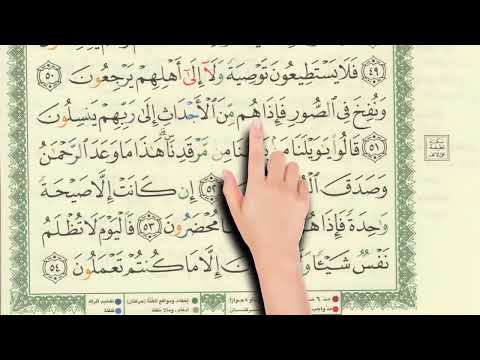 ٤٩ فَلَا يَسْتَطِيعُونَ تَوْصِيَةً وَلَآ إِلَىٰٓ أَهْلِهِمْ يَرْجِعُونَ ٥٠
وَنُفِخَ فِى ٱلصُّورِ فَإِذَا هُم مِّنَ ٱلْأَجْدَاثِ إِلَىٰ رَبِّهِمْ يَنسِلُونَ
٥١ قَالُوا۟ يَٰوَيْلَنَا مِن مَّرْقَدِنَا ۜ هَٰذَا مَا وَعَدَ ٱلرَّحْمَٰنُ
وَصَدَقَ ٥٢ إِن كَانَتْ إِلَّا صَيْحَةً
وَٰحِدَةً فَإِذَا مُحْضَرُونَ ٥٣ فَٱلْيَوْمَ لَا تُظْلَمُ
نَفْسٌ شَيْـًٔا إِلَّا مَا كُنتُمْ تَعْمَلُونَ ٥٤